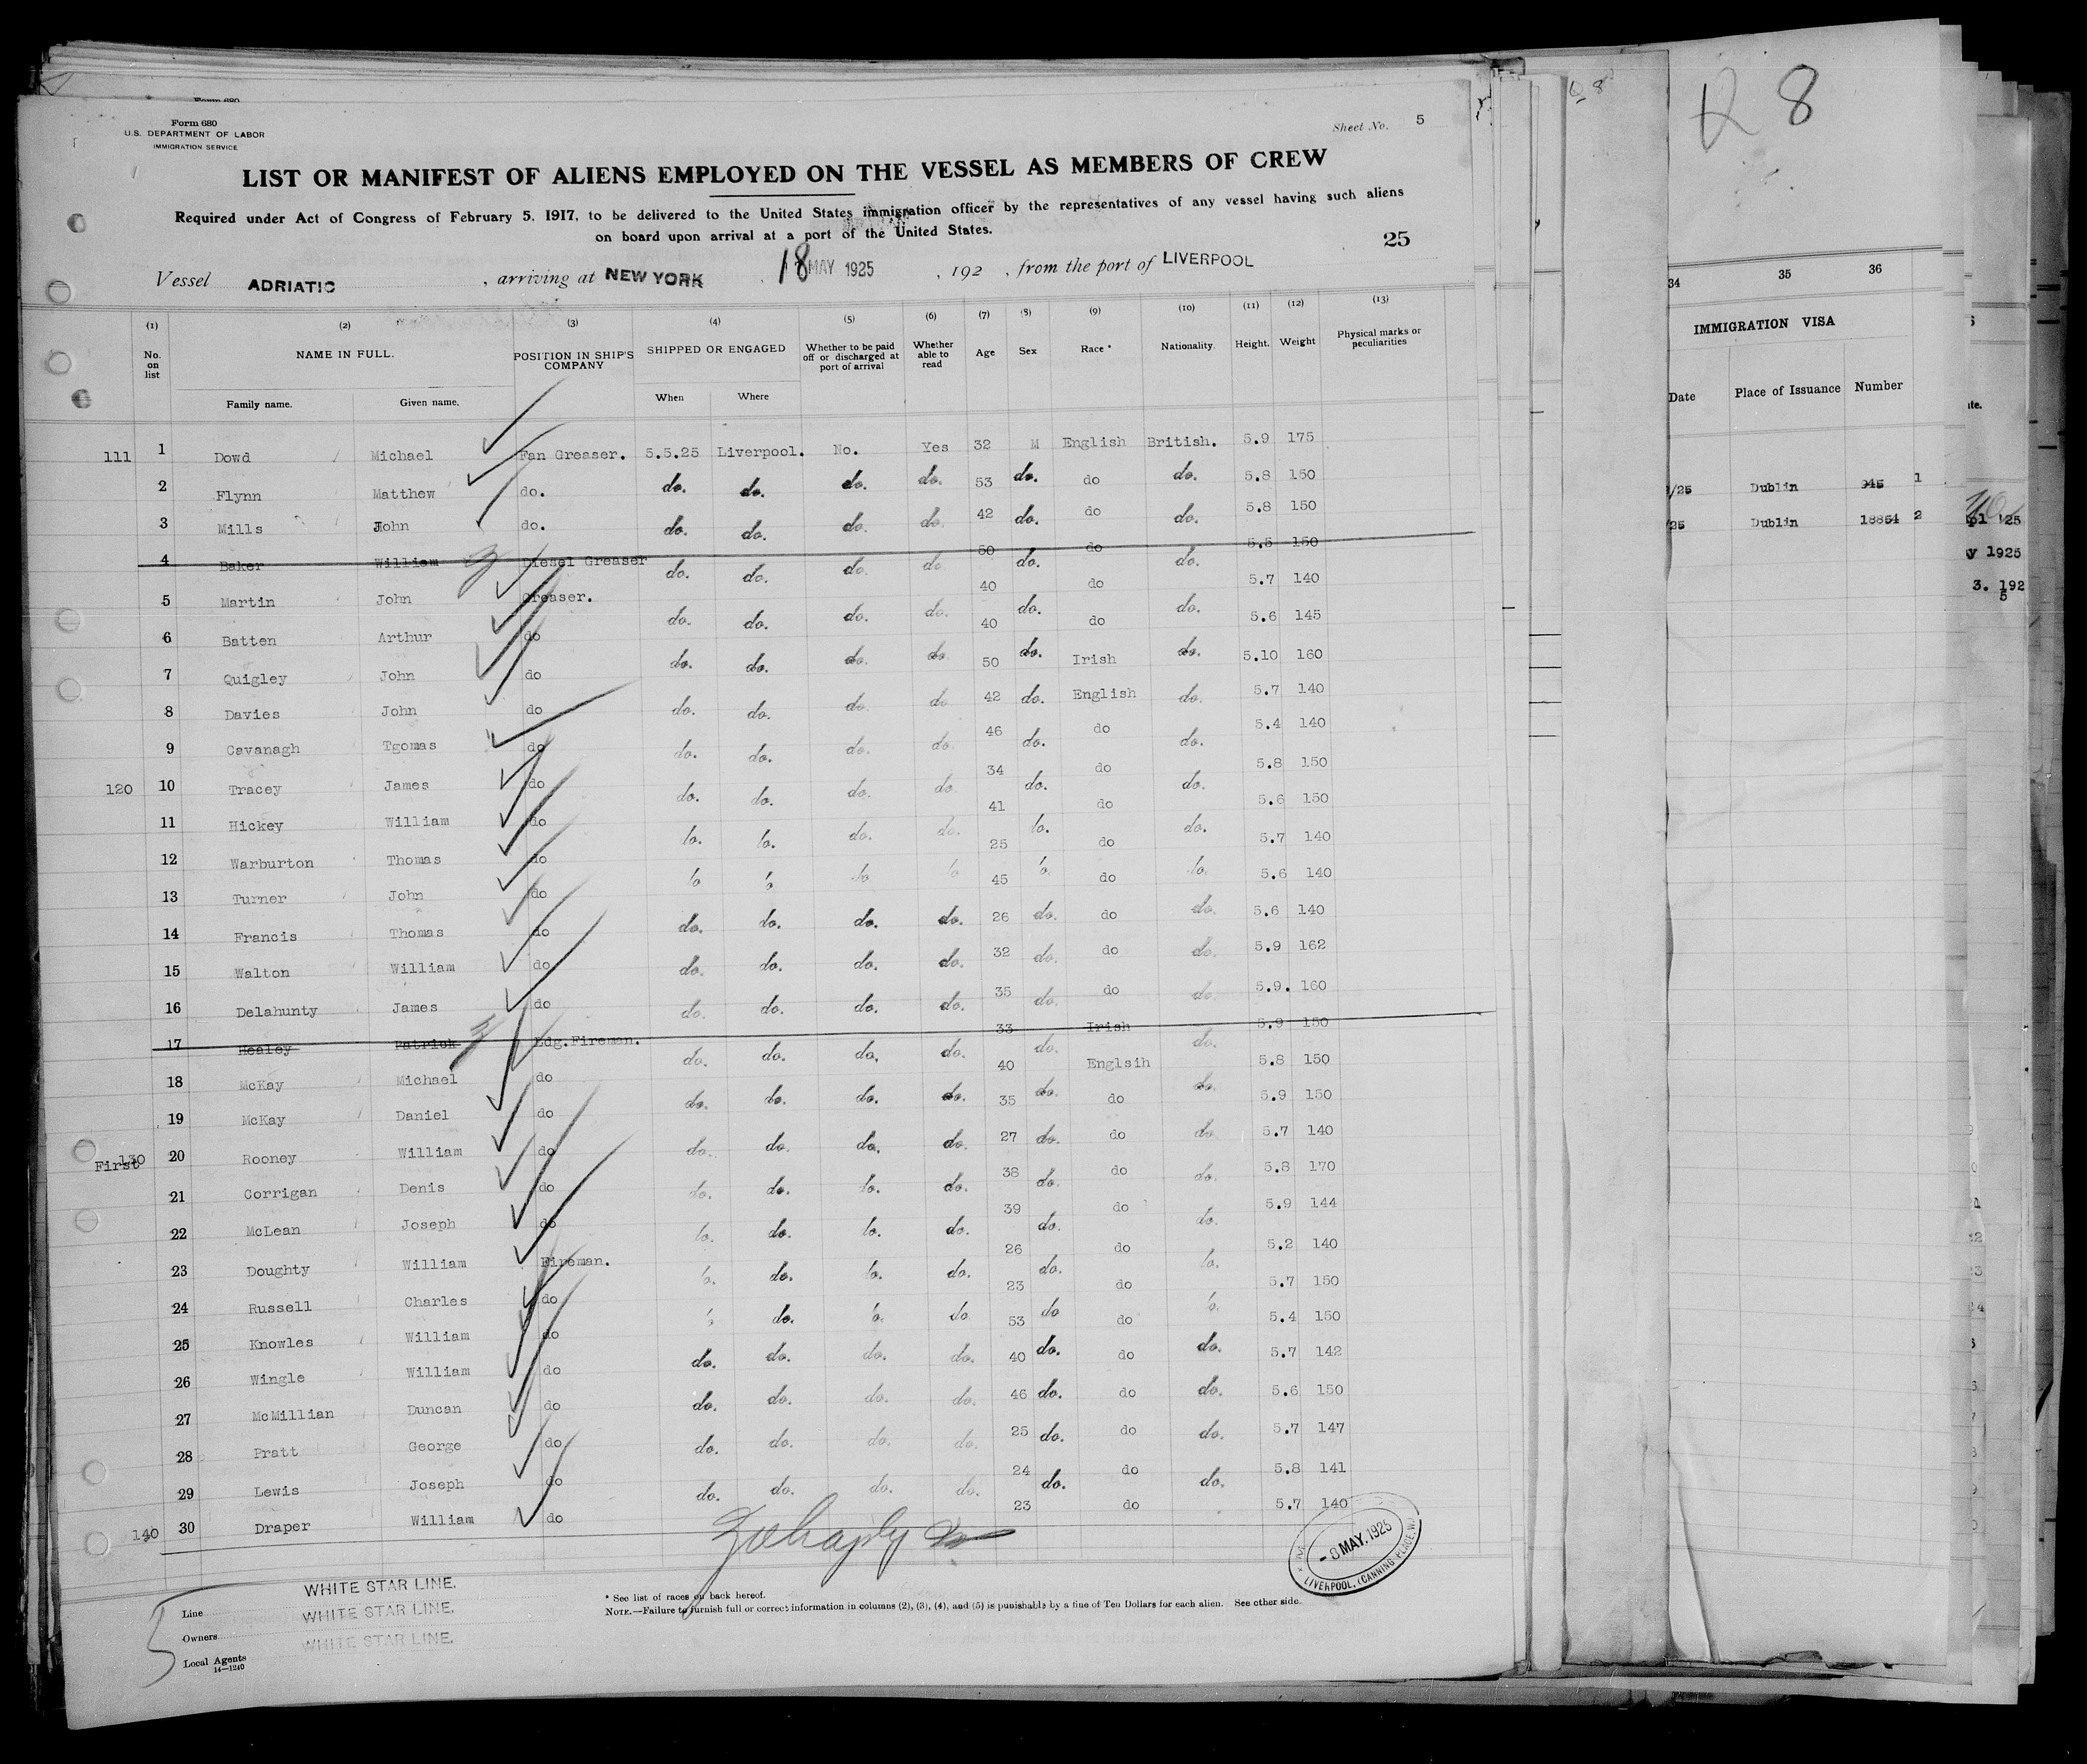 Form 680
U.S. DEPARTMENT OF LABOR
IMMIGRATION SERVICE
Sheet No. 5
LIST OR MANIFEST OF ALIENS EMPLOYED ON THE VESSEL AS MEMBERS OF CREW
Required under Act of Congress of February 5, 1917, to be delivered to the United States immigration officer by the representatives of any vessel having such aliens
on board upon arrival at a port of the United States.
25
Vessel ADRIATIC , arriving at NEW YORK 18 MAY 1925 , 192 , from the port of LIVERPOOL
(1) (2) (3) (4) (5) (6) (7) (8) (9) (10) (11) (12) (13)
No. on list NAME IN FULL. POSITION IN SHIP'S COMPANY SHIPPED OR ENGAGED Whether to be paid off or discharged at port of arrival Whether able to read Age Sex Race * Nationality. Height. Weight Physical marks or peculiarities
Family name. Given name. When Where
111 1 Dowd Michael Fan Greaser. 5.5.25 Liverpool. No. Yes 32 M English British. 5.9 175
2 Flynn Matthew do. do. do. do. do. 53 do. do do. 5.8 150
3 Mills John do. do. do. do. do. 42 do. do do. 5.8 150
4 Baker William Diesel Greaser do. do. do. do 50 do. do do. 5.5 150
5 Martin John Greaser. do. do. do. do. 40 do. do do. 5.7 140
6 Batten Arthur do do. do. do. do. 40 do. do do. 5.6 145
7 Quigley John do do. do. do. do 50 do. Irish do. 5.10 160
8 Davies John do do. do. do. do. 42 do. English do. 5.7 140
9 Cavanagh Tgomas do do. do. do. do. 46 do. do do. 5.4 140
120 10 Tracey James do do. do. do. do. 34 do. do do. 5.8 150
11 Hickey William do do. do. do. do. 41 do. do do. 5.6 150
12 Warburton Thomas do do do do do 25 do. do do. 5.7 140
13 Turner John do do. do. do. do. 45 do. do do. 5.6 140
14 Francis Thomas do do. do. do. do. 26 do. do do. 5.6 140
15 Walton William do do. do. do. do. 32 do. do do. 5.9 162
16 Delahunty James do do. do. do. do. 35 do. do do. 5.9. 160
17 Healey Patrick Ldg.Fireman. do. do. do. do. 33 do. Irish do. 5.9 150
18 McKay Michael do do. do. do. do. 40 do. Englsih do. 5.8 150
19 McKay Daniel do do. do. do. do. 35 do. do do. 5.9 150
First 130 20 Rooney William do do. do. do. do. 27 do. do do. 5.7 140
21 Corrigan Denis do do. do. do. do. 38 do. do do. 5.8 170
22 McLean Joseph do do. do. do. do. 39 do. do do. 5.9 144
23 Doughty William Fireman. do. do. do. do. 26 do. do do. 5.2 140
24 Russell Charles do do. do. do. do 23 do do do. 5.7 150
25 Knowles William do do. do. do. do. 53 do. do do. 5.4 150
26 Wingle William do do. do. do. do. 40 do. do do. 5.7 142
27 McMillian Duncan do do. do. do. do. 46 do. do do. 5.6 150
28 Pratt George do do. do. do. do. 25 do. do do. 5.7 147
29 Lewis Joseph do do. do. do. do. 24 do. do do. 5.8 141
140 30 Draper William do 23 do 5.7 140
-8 MAY. 1925
LIVERPOOL, (CANNING-PLACE, W.)
Line WHITE STAR LINE.
Owners WHITE STAR LINE.
Local Agents WHITE STAR LINE.
14—1240
* See list of races on back hereof.
NOTE.—Failure to furnish full or correct information in columns (2), (3), (4), and (5) is punishable by a fine of Ten Dollars for each alien. See other side.
5
8
34 35 36
IMMIGRATION VISA
Date Place of Issuance Number
/25 Dublin 945 1
/25 Dublin 18854 2
25
1925
3. 192
5